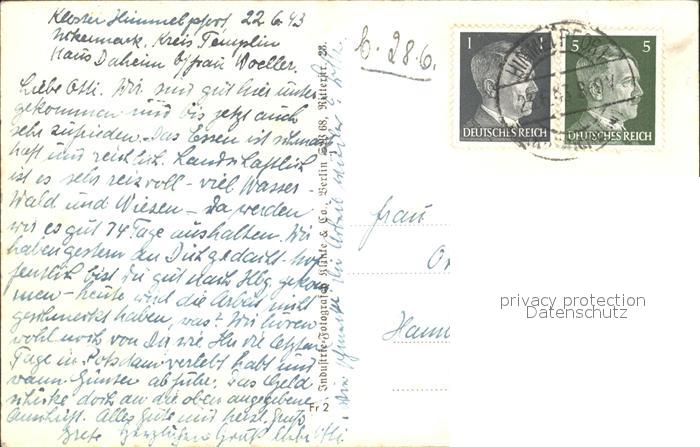 Kloster Himmelpfort 22.6.43
Uckermark, Kreis Templin
Haus Daheim b/frau Woeller.
Liebe Otti. Wir sind gut hier unter-
gekommen und bis jetzt auch
sehr zufrieden. Das Essen ist schmack
haft und reichlich. Landschaftlich
ist es sehr reizvoll - viel Wasser -
Wald und Wiesen - Da werden
wir es gut 14 Tage aushalten. Wir
haben gestern an Dich gedacht. Hof-
fentlich bist Du gut nach Hbg. gekom
men - heute wird die Arbeit nicht
geschmeckt haben, was? Wir hören
wohl noch von Dir wie Ihr die letzten
Tage in Potsdam verlebt habt und
wann Günter abfuhr. Das Geld
schicke doch an die oben angegebene
Anschrift. Alles Gute mit herzl. Gruß
Grete
b. 28.6.
Industrie-Fotografen Klinke & Co., Berlin SW 68, Ritterstr. 28.
Fr 2
1
DEUTSCHES REICH
5 5
DEUTSCHES REICH
frau
Hann
privacy protection
Datenschutz